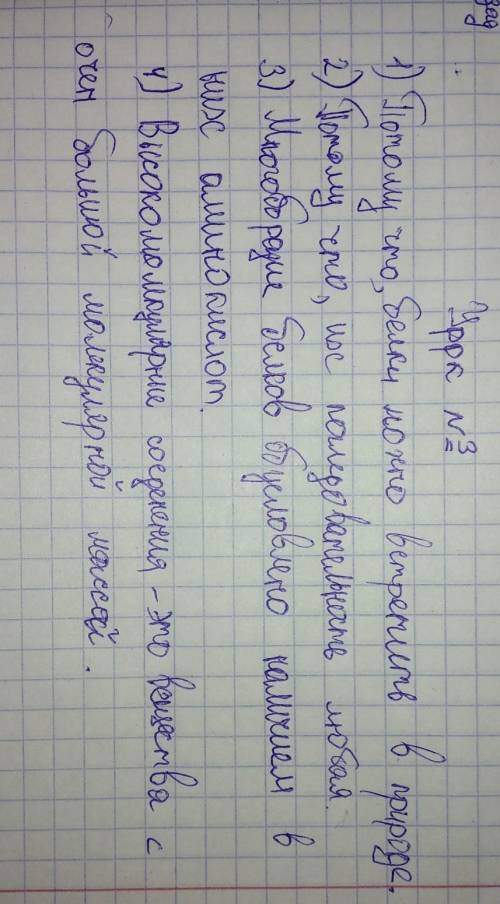 Урок №3
1) Потому что, белки можно встретить в природе.
2) Потому что, их последовательность любая.
3) Многообразие белков обусловлено наличием в
них аминокислот.
4) Высокомолекулярные соединения - это вещества с
очен большой молекулярной массой.